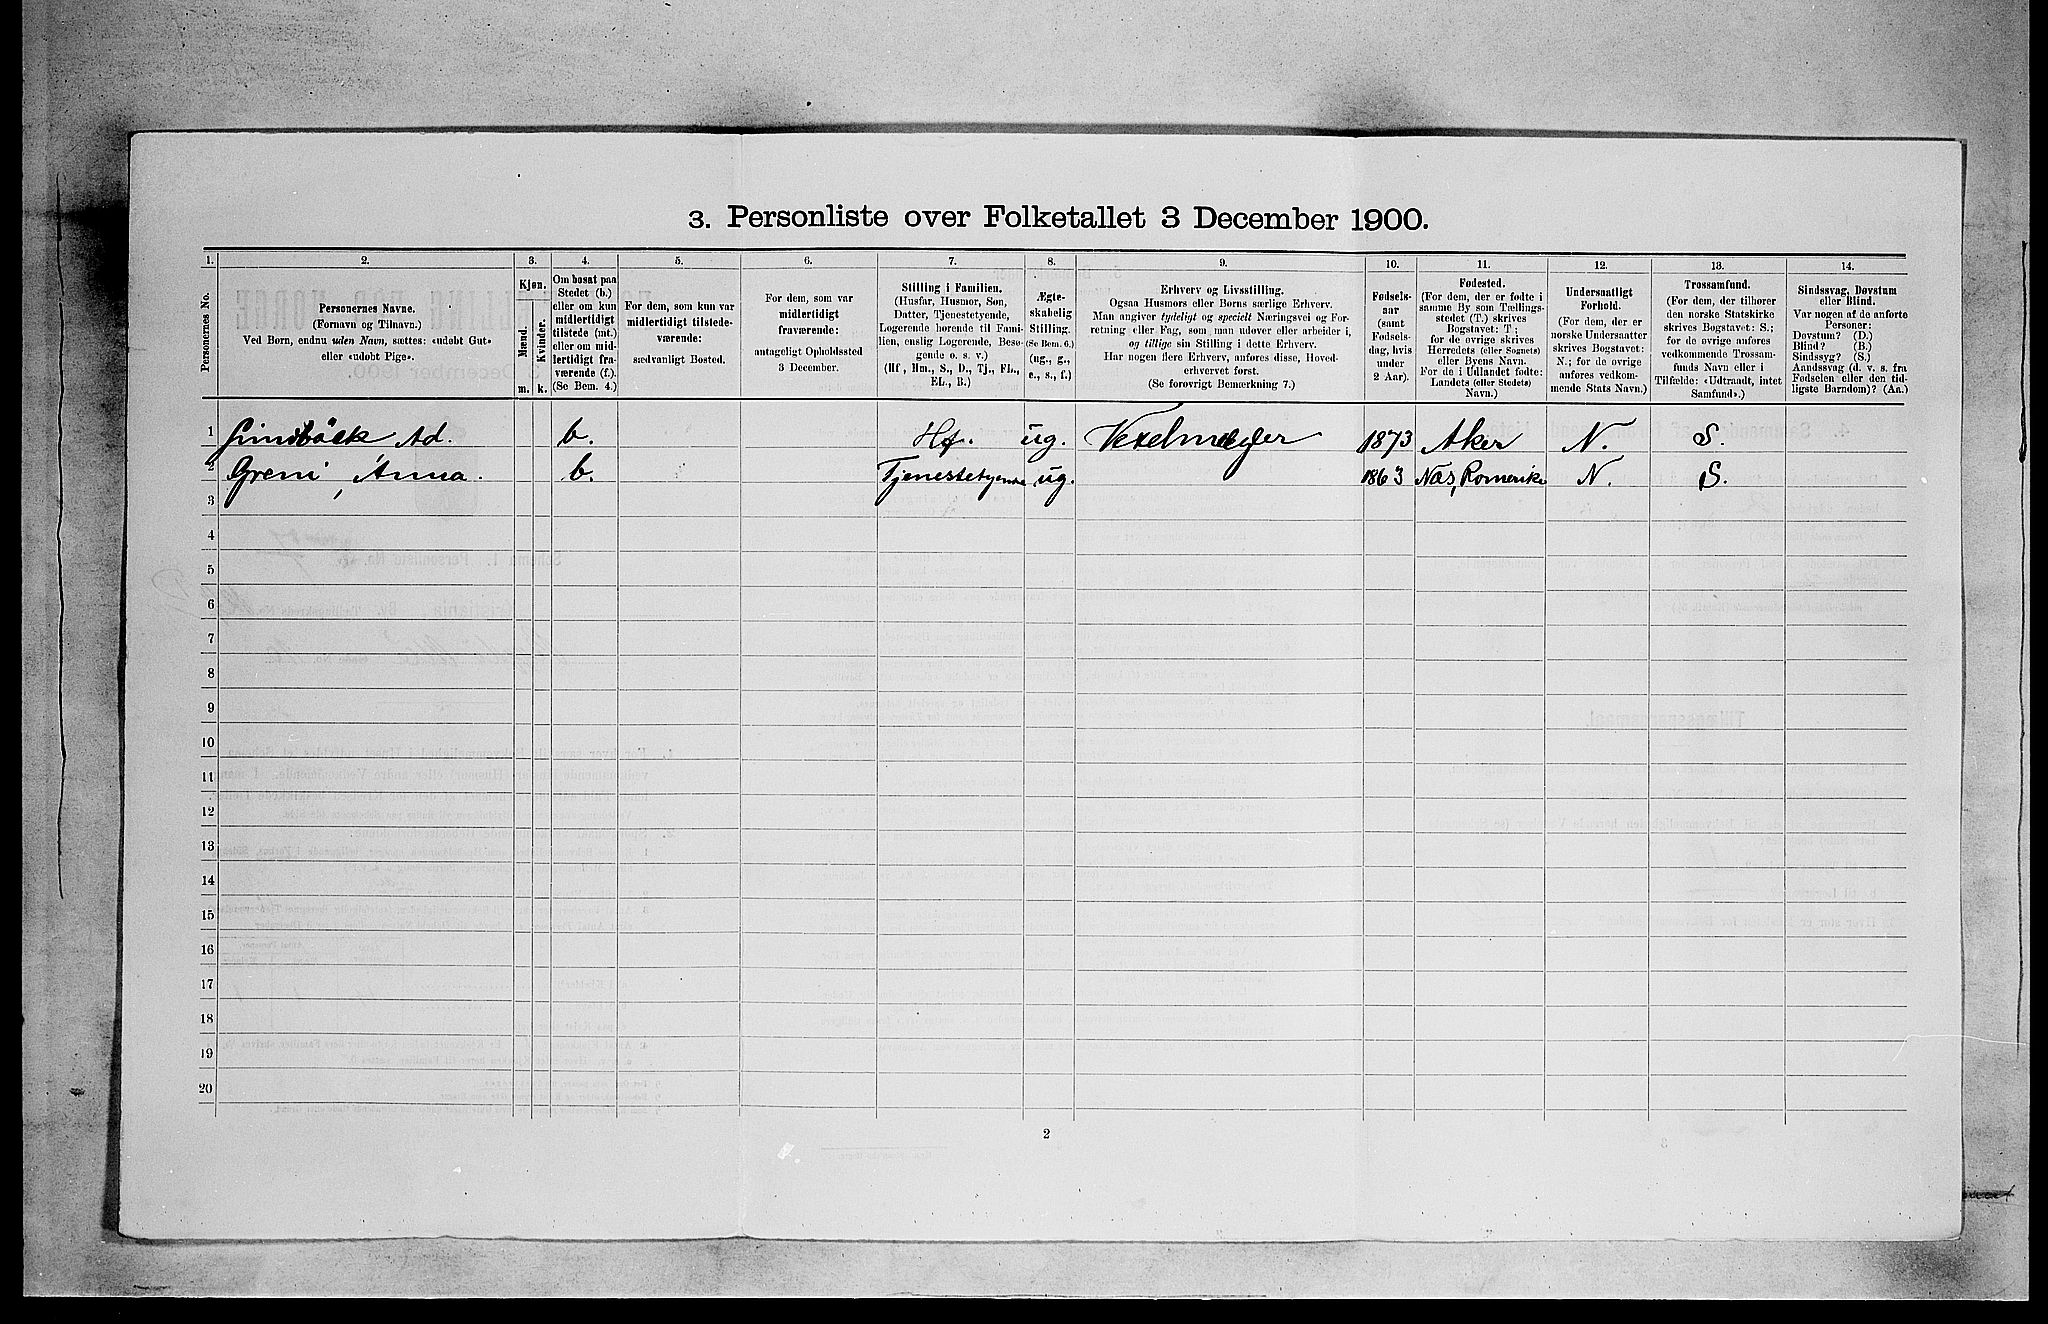 3. Personliste over Folketallet 3 December 1900.
1. 2. 3. 4. 5. 6. 7. 8. 9. 10. 11. 12. 13. 14.
Personernes No.
Personernes Navne.
(Fornavn og Tilnavn.)
Ved Børn, endnu uden Navn, sættes: «udøbt Gut»
eller «udøbt Pige».
Kjøn.
Mænd.
Kvinder.
m. k.
Om bosat paa
Stedet (b.)
eller om kun
midlertidigt
tilstede (mt.)
eller om mid-
lertidigt fra-
værende (f.).
(Se Bem. 4.)
For dem, som kun var
midlertidigt tilstede-
værende:
sædvanligt Bosted.
For dem, som var
midlertidigt
fraværende:
antageligt Opholdssted
3 December.
Stilling i Familien.
(Husfar, Husmor, Søn,
Datter, Tjenestetyende,
Logerende hørende til Fami-
lien, enslig Logerende, Besø-
gende o. s. v.)
(Hf, Hm., S., D., Tj., FL.,
EL., B.)
Ægte-
skabelig
Stilling.
(Se Bem. 6.)
(ug., g.,
e., s., f.)
Erhverv og Livsstilling.
Ogsaa Husmors eller Børns særlige Erhverv.
Man angiver tydeligt og specielt Næringsvei og For-
retning eller Fag, som man udøver eller arbeider i,
og tillige sin Stilling i dette Erhverv.
Har nogen flere Erhverv, anføres disse, Hoved-
erhvervet først.
(Se forøvrigt Bemærkning 7.)
Fødsels-
aar
(samt
Fødsels-
dag, hvis
under
2 Aar).
Fødested.
(For dem, der er fødte i
samme By som Tællings-
stedet (T.) skrives
Bogstavet: T;
for de øvrige skrives
Herredets (eller Sognets)
eller Byens Navn.
For de i Udlandet fødte:
Landets (eller Stedets)
Navn.)
Undersaatligt
Forhold.
(For dem, der er
norske Undersaatter
skrives Bogstavet:
N.; for de øvrige
anføres vedkom-
mende Stats Navn.)
Trossamfund.
(For dem, der tilhører
den norske Statskirke
skrives Bogstavet: S.;
for de øvrige anføres
vedkommende Trossam-
funds Navn eller i
Tilfælde: «Udtraadt, intet
Samfund».)
Sindssvag, Døvstum
eller Blind.
Var nogen af de anførte
Personer:
Døvstum? (D.)
Blind? (B.)
Sindssyg? (S.)
Aandssvag (d. v. s. fra
Fødselen eller den tid-
ligste Barndom)? (Aa.)
1 Lindbäck Ad. b. Hf. ug. Vexelmægler 1873 Aker N. S.
2 Greni, Anna. b. Tjenestetyende ug. 1863 Næs, Romerike N. S.
3
4
5
6
7
8
9
10
11
12
13
14
15
16
17
18
19
20
2